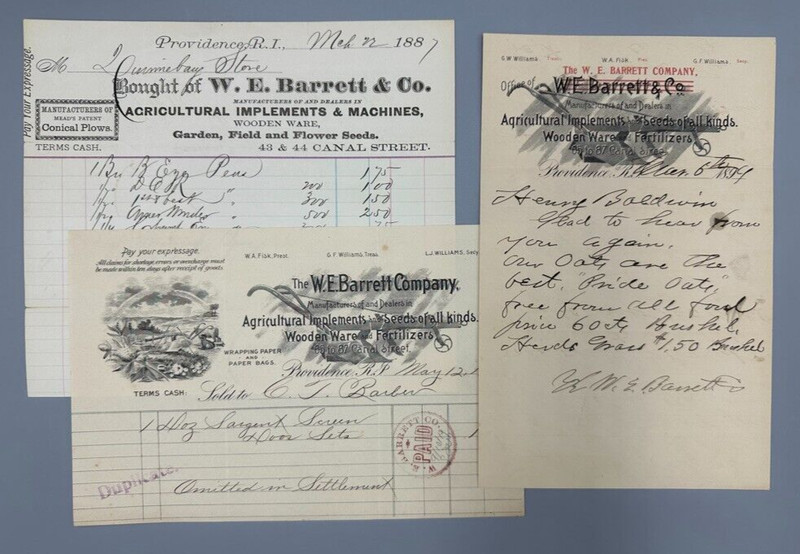 Pay Your Expressage.
Providence, R.I., Mch 22 1887
M Quinnebaug Store
Bought of W. E. Barrett & Co.
MANUFACTURERS OF AND DEALERS IN
AGRICULTURAL IMPLEMENTS & MACHINES,
WOODEN WARE,
Garden, Field and Flower Seeds.
MANUFACTURERS OF
MEAD'S PATENT
Conical Plows.
TERMS CASH. 43 & 44 CANAL STREET.
Peas 1.75
200 1.00
300 1.50
500 2.50
Pay your expressage.
All claims for shortage, errors, or overcharge must
be made within ten days after receipt of goods.
W.A. Fisk, Prest. G.F. Williams, Treas. L.J. WILLIAMS, Secy.
The W.E. Barrett Company,
Manufacturers of and Dealers in
Agricultural Implements and Seeds of all kinds.
Wooden Ware and Fertilizers
85 to 87 Canal Street.
WRAPPING PAPER
AND
PAPER BAGS.
Providence, R.I. May 12
TERMS CASH: Sold to C. T. Barber
1 Doz Sargent Screen
Door Sets
W. E. BARRETT CO.
PAID
Duplicate.
Omitted in Settlement
G.W. Williams. W.A. Fisk. G.F. Williams.
The W. E. BARRETT COMPANY,
Office of W.E. Barrett & Co.
Manufacturers of and Dealers in
Agricultural Implements and Seeds of all kinds.
Wooden Ware and Fertilizers
85 to 87 Canal Street.
Providence, R.I. Mar 6th 1899
Henry Baldwin
Glad to hear from
you again.
Our Oats are the
best, "Pride Oats,"
free from all foul
price 60cts Bushel,
Herds Grass $1.50 Bushel
W. E. Barrett Co